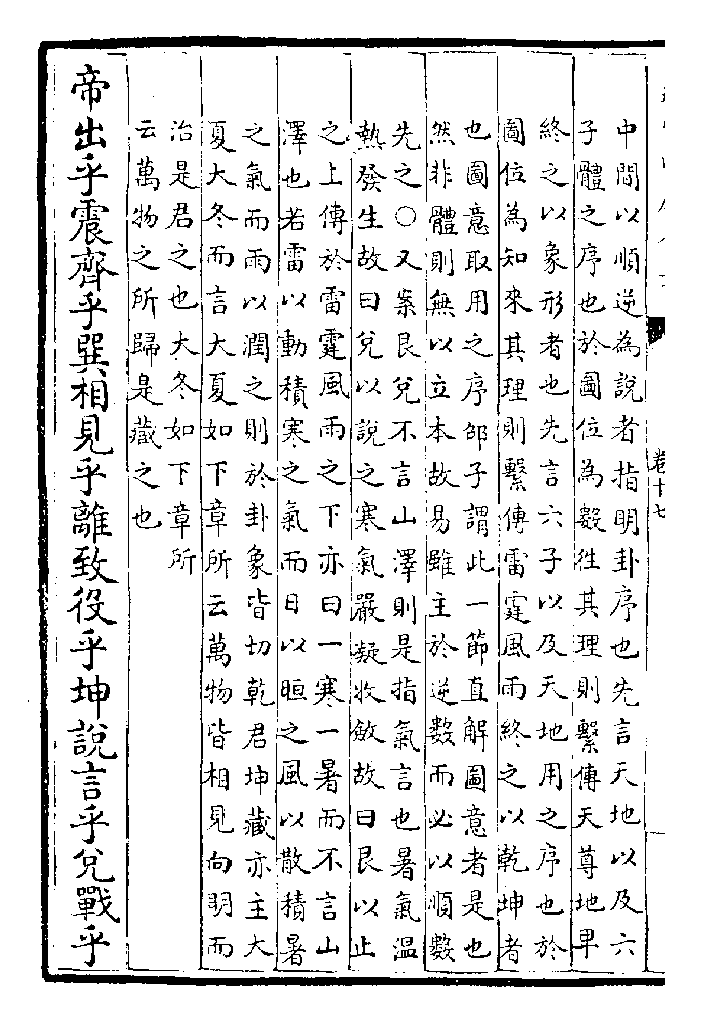 卷十七
中間以順逆為說者指明卦序也先言天地以及六
子體之序也於圖位為數徃其理則繫傳天尊地卑
終之以象形者也先言六子以及天地用之序也於
圖位為知來其理則繫傳雷霆風雨終之以乾坤者
也圖意取用之序邵子謂此一節直解圖意者是也
然非體則無以立本故易雖主於逆數而必以順數
先之○又案艮兌不言山澤則是指氣言也暑氣溫
熱發生故曰兌以說之寒氣嚴凝收斂故曰艮以止
之上傳於雷霆風雨之下亦曰一寒一暑而不言山
澤也若雷以動積寒之氣而日以晅之風以散積暑
之氣而雨以潤之則於卦象皆切乾君坤藏亦主大
夏大冬而言大夏如下章所云萬物皆相見向明而
治是君之也大冬如下章所
云萬物之所歸是藏之也
帝出乎震齊乎巽相見乎離致役乎坤說言乎兌戰乎